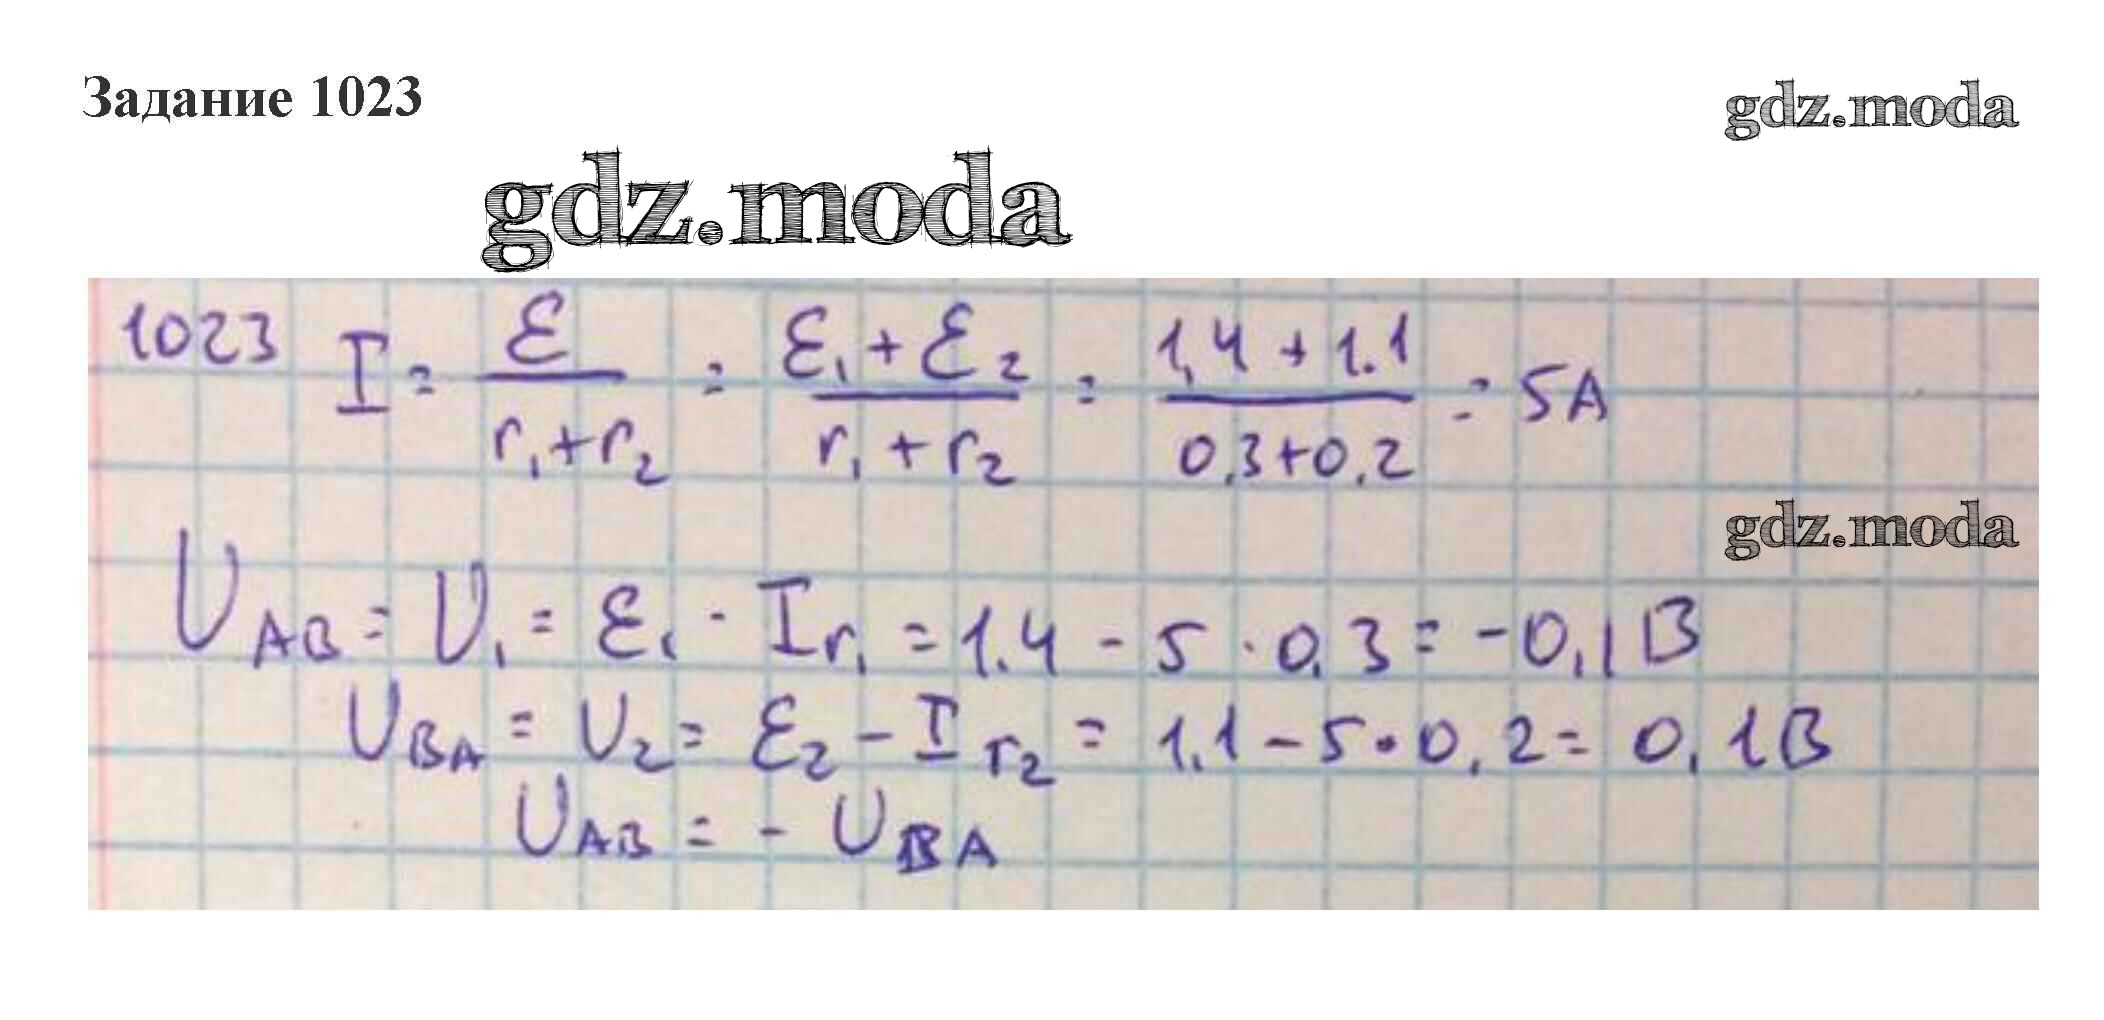 Задание 1023
gdz.moda
gdz.moda
1023 I = ε / (r₁+r₂) = (ε₁+ε₂) / (r₁+r₂) = (1,4+1.1) / (0,3+0,2) = 5A
gdz.moda
U_AB = U₁ = ε₁ - Ir₁ = 1.4 - 5 · 0,3 = -0,1B
U_BA = U₂ = ε₂ - Ir₂ = 1.1 - 5 · 0,2 = 0,1B
U_AB = - U_BA